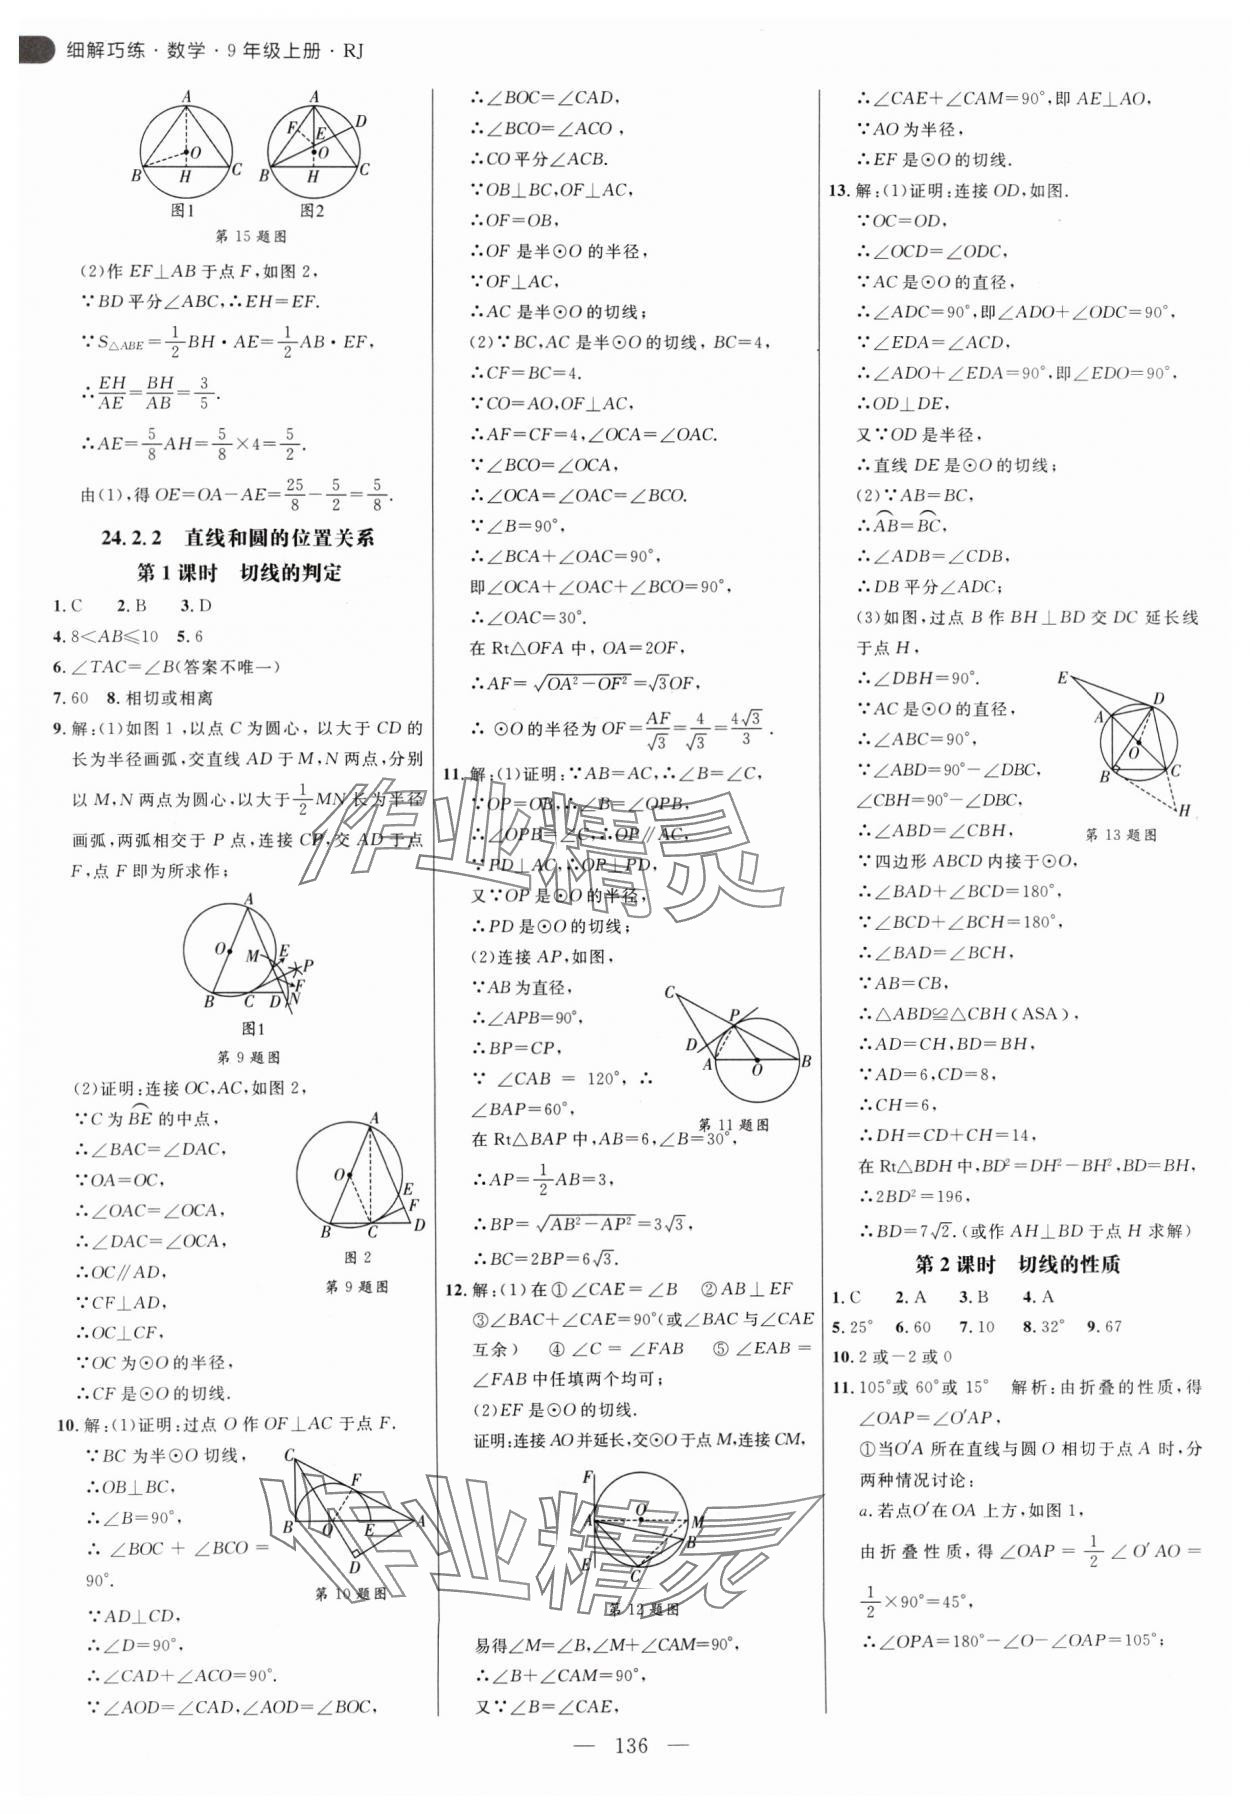 细解巧练·数学·9年级上册·RJ
A
O
B
H
C
图1
A
F
E
D
O
B
H
C
图2
第15题图
(2)作EF⊥AB于点F,如图2,
∵BD平分∠ABC,∴EH=EF.
∵S△ABE=1/2BH·AE=1/2AB·EF,
∴EH/AE=BH/AB=3/5.
∴AE=5/8AH=5/8×4=5/2.
由(1),得OE=OA-AE=25/8-5/2=5/8.
24.2.2 直线和圆的位置关系
第1课时 切线的判定
1.C 2.B 3.D
4.8<AB≤10 5.6
6.∠TAC=∠B(答案不唯一)
7.60 8.相切或相离
9.解:(1)如图1,以点C为圆心,以大于CD的
长为半径画弧,交直线AD于M,N两点,分别
以M,N两点为圆心,以大于1/2MN长为半径
画弧,两弧相交于P点,连接CP,交AD于点
F,点F即为所求作;
A
O
M
E
P
F
B
C
D
N
图1
第9题图
(2)证明:连接OC,AC,如图2,
∵C为BE的中点,
∴∠BAC=∠DAC,
∵OA=OC,
∴∠OAC=∠OCA,
∴∠DAC=∠OCA,
∴OC∥AD,
∵CF⊥AD,
∴OC⊥CF,
∵OC为⊙O的半径,
∴CF是⊙O的切线.
A
O
E
F
B
C
D
图2
第9题图
10.解:(1)证明:过点O作OF⊥AC于点F.
∵BC为半⊙O切线,
∴OB⊥BC,
∴∠B=90°,
∴∠BOC+∠BCO=
90°.
∵AD⊥CD,
∴∠D=90°,
∴∠CAD+∠ACO=90°.
∵∠AOD=∠CAD,∠AOD=∠BOC,
C
F
B
O
E
A
D
第10题图
∴∠BOC=∠CAD,
∴∠BCO=∠ACO,
∴CO平分∠ACB.
∵OB⊥BC,OF⊥AC,
∴OF=OB,
∴OF是半⊙O的半径,
∵OF⊥AC,
∴AC是半⊙O的切线;
(2)∵BC,AC是半⊙O的切线,BC=4,
∴CF=BC=4.
∵CO=AO,OF⊥AC,
∴AF=CF=4,∠OCA=∠OAC.
∵∠BCO=∠OCA,
∴∠OCA=∠OAC=∠BCO.
∵∠B=90°,
∴∠BCA+∠OAC=90°,
即∠OCA+∠OAC+∠BCO=90°,
∴∠OAC=30°.
在Rt△OFA中,OA=2OF,
∴AF=√(OA²-OF²)=√3OF,
∴⊙O的半径为OF=AF/√3=4/√3=4√3/3.
11.解:(1)证明:∵AB=AC,∴∠B=∠C,
∵OP=OB,∴∠B=∠OPB,
∴∠OPB=∠C,∴OP∥AC,
∵PD⊥AC,∴OP⊥PD,
又∵OP是⊙O的半径,
∴PD是⊙O的切线;
(2)连接AP,如图,
∵AB为直径,
∴∠APB=90°,
∴BP=CP,
∵∠CAB=120°,∴
∠BAP=60°,
在Rt△BAP中,AB=6,∠B=30°,
∴AP=1/2AB=3,
∴BP=√(AB²-AP²)=3√3,
∴BC=2BP=6√3.
C
P
D
A
O
B
第11题图
12.解:(1)在①∠CAE=∠B ②AB⊥EF
③∠BAC+∠CAE=90°(或∠BAC与∠CAE
互余) ④∠C=∠FAB ⑤∠EAB=
∠FAB中任填两个均可;
(2)EF是⊙O的切线.
证明:连接AO并延长,交⊙O于点M,连接CM,
F
O
A
M
B
E
C
第12题图
易得∠M=∠B,∠M+∠CAM=90°,
∴∠B+∠CAM=90°,
又∵∠B=∠CAE,
∴∠CAE+∠CAM=90°,即AE⊥AO,
∵AO为半径,
∴EF是⊙O的切线.
13.解:(1)证明:连接OD,如图.
∵OC=OD,
∴∠OCD=∠ODC,
∵AC是⊙O的直径,
∴∠ADC=90°,即∠ADO+∠ODC=90°,
∵∠EDA=∠ACD,
∴∠ADO+∠EDA=90°,即∠EDO=90°,
∴OD⊥DE,
又∵OD是半径,
∴直线DE是⊙O的切线;
(2)∵AB=BC,
∴AB=BC,
∴∠ADB=∠CDB,
∴DB平分∠ADC;
(3)如图,过点B作BH⊥BD交DC延长线
于点H,
∴∠DBH=90°.
∵AC是⊙O的直径,
∴∠ABC=90°,
∵∠ABD=90°-∠DBC,
∠CBH=90°-∠DBC,
∴∠ABD=∠CBH,
∵四边形ABCD内接于⊙O,
∴∠BAD+∠BCD=180°,
∵∠BCD+∠BCH=180°,
∴∠BAD=∠BCH,
∵AB=CB,
∴△ABD≌△CBH(ASA),
∴AD=CH,BD=BH,
∵AD=6,CD=8,
∴CH=6,
∴DH=CD+CH=14,
在Rt△BDH中,BD²=DH²-BH²,BD=BH,
∴2BD²=196,
∴BD=7√2.(或作AH⊥BD于点H求解)
E
D
A
O
B
C
H
第13题图
第2课时 切线的性质
1.C 2.A 3.B 4.A
5.25° 6.60 7.10 8.32° 9.67
10.2或-2或0
11.105°或60°或15° 解析:由折叠的性质,得
∠OAP=∠O′AP,
①当O′A所在直线与圆O相切于点A时,分
两种情况讨论:
a.若点O′在OA上方,如图1,
由折叠性质,得∠OAP=1/2∠O′AO=
1/2×90°=45°,
∴∠OPA=180°-∠O-∠OAP=105°;
作业精灵
作业精灵
— 136 —